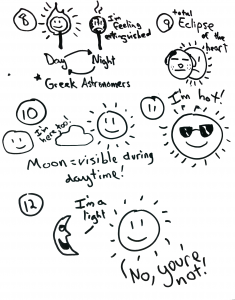 8
I'm
Feeling
extinguished
Day Night
* Greek Astronomers
9 total
Eclipse
of the
heart
10
I'm
here too!
Moon = visible during
daytime!
11
I'm hot!
12
I'm a
light
No, you're
not!